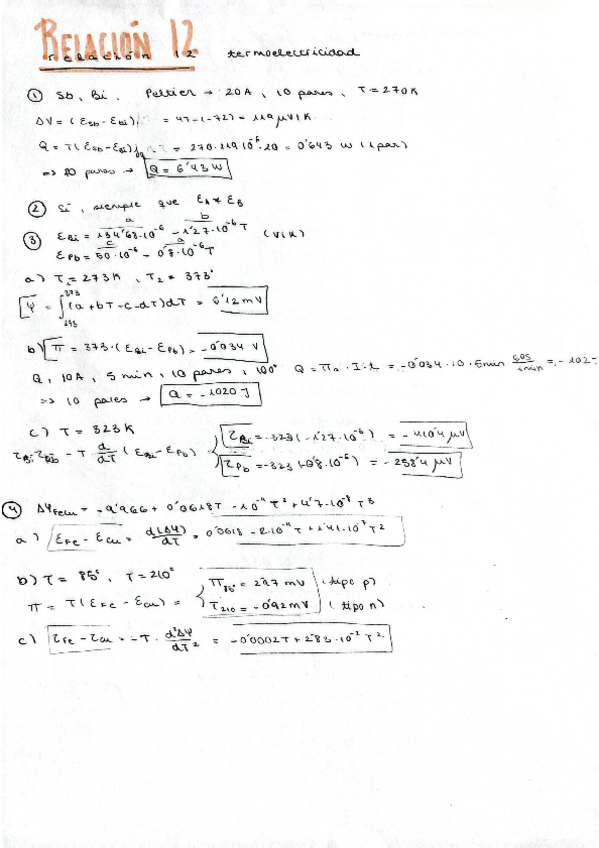 RELACIÓN 12
relación 12 termoelectricidad
① Sb, Bi. Peltier → 20A, 10 pares, T = 270K
ΔV = (ε_Sb - ε_Bi) = 47 - (-72) = 119 μV/K
Q = T(ε_Sb - ε_Bi) = 270·119·10^-6·20 = 0'643 W (1 par)
=> 10 pares → Q = 6'43 W
② Sí, siempre que ε_A ≠ ε_B
a b
③ ε_Bi = 134'68·10^-6 - 1'27·10^-6 T (V/K)
c d
ε_Pb = 50·10^-6 - 0'8·10^-6 T
a) T = 273K, T2 = 373°
Ψ = ∫_273^373 (a + bT - c - dT) dT = 6'12 mV
b) π = 373·(ε_Bi - ε_Pb) = -0'034 V
Q, 10A, 5 min, 10 pares, 100° Q = π·I·t = -0'034·10·5min 60s/1min = -102
=> 10 pares → Q = -1020 J
c) T = 323K
-T d/dT (ε_Bi - ε_Pb) τ_Bi = -323(-1'27·10^-6) = -410'4 μV
τ_Pb = -323 (0'8·10^-6) = -258'4 μV
④ ΔΨ_FeCu = -9'966 + 0'0618T - 10^-4 T² + 4'7·10^-8 T³
a) ε_Fe - ε_Cu = d(ΔΨ)/dT = 0'0618 - 2·10^-4 T + 1'41·10^-7 T²
b) T = 85°, T = 210° π_85° = 2'97 mV (tipo p)
π = T(ε_Fe - ε_Cu) = π_210 = -0'92 mV (tipo n)
c) τ_Fe - τ_Cu = -T·d²ΔΨ/dT² = -0'0002T + 2'83·10^-7 T²